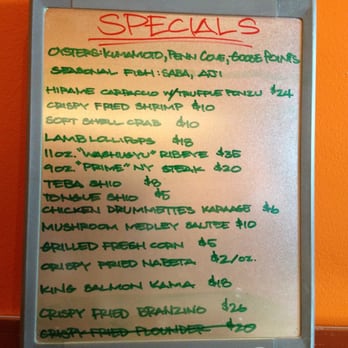 SPECIALS
OYSTERS: KUMAMOTO, PENN COVE, GOOSE POINTS
SEASONAL FISH: SABA, AJI
HIRAME CARPACCIO W/TRUFFLE PONZU $24
CRISPY FRIED SHRIMP $10
SOFT SHELL CRAB $10
LAMB LOLLIPOPS $18
11oz. "WASHUGYU" RIBEYE $35
9oz. "PRIME" NY STEAK $20
TEBA SHIO $8
TONGUE SHIO $5
CHICKEN DRUMMETTES KARAAGE $6
MUSHROOM MEDLEY SAUTEE $10
GRILLED FRESH CORN $5
CRISPY FRIED NABETA $2/oz.
KING SALMON KAMA $18
CRISPY FRIED BRANZINO $26
CRISPY FRIED FLOUNDER $20